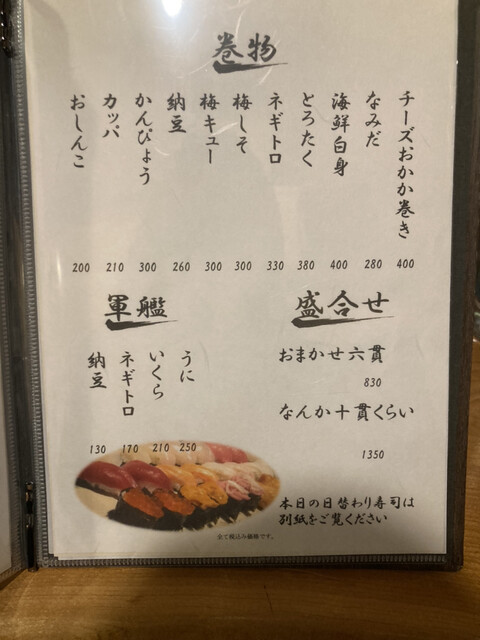 巻物
チーズおかか巻き
なみだ
海鮮白身
とろたく
ネギトロ
梅しそ
梅キュー
納豆
かんぴょう
カッパ
おしんこ
200 210 300 260 300 300 330 380 400 280 400
軍艦
うに
いくら
ネギトロ
納豆
130 170 210 250
盛合せ
おまかせ六貫
830
なんか十貫くらい
1350
本日の日替わり寿司は
別紙をご覧ください
全て税込み価格です。